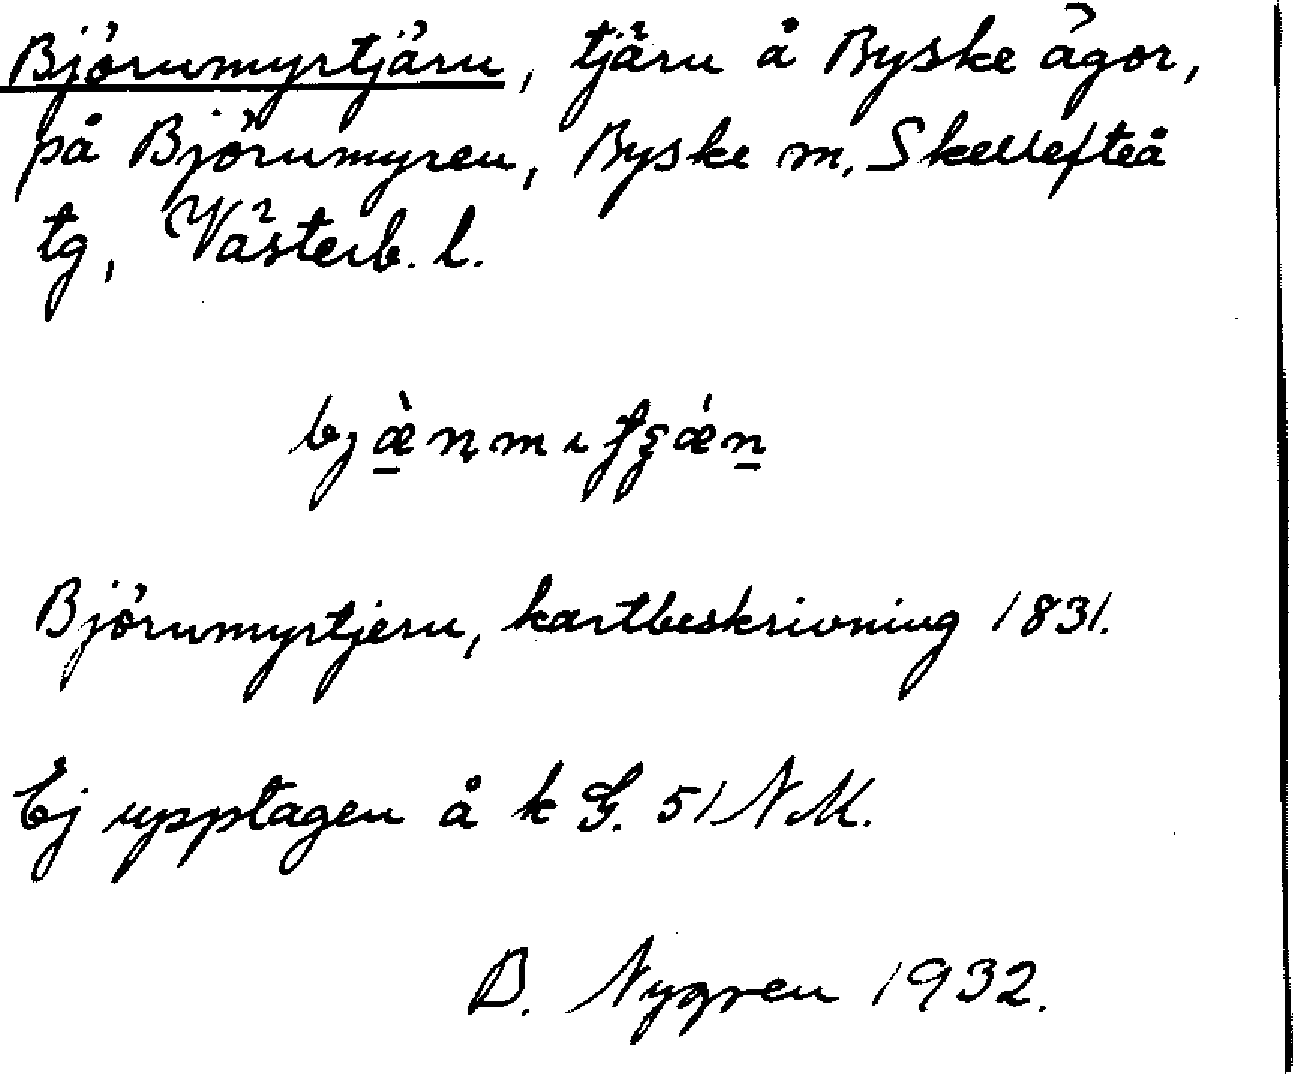 Björnmyrtjärn, tjärn å Byske ägor,
på Björnmyren, Byske sn, Skellefteå
tg, Västerb. l.
Björnmyrtjern, kartbeskrivning 1831.
Ej upptagen å k G. 51 N M.
B. Nygren 1932.